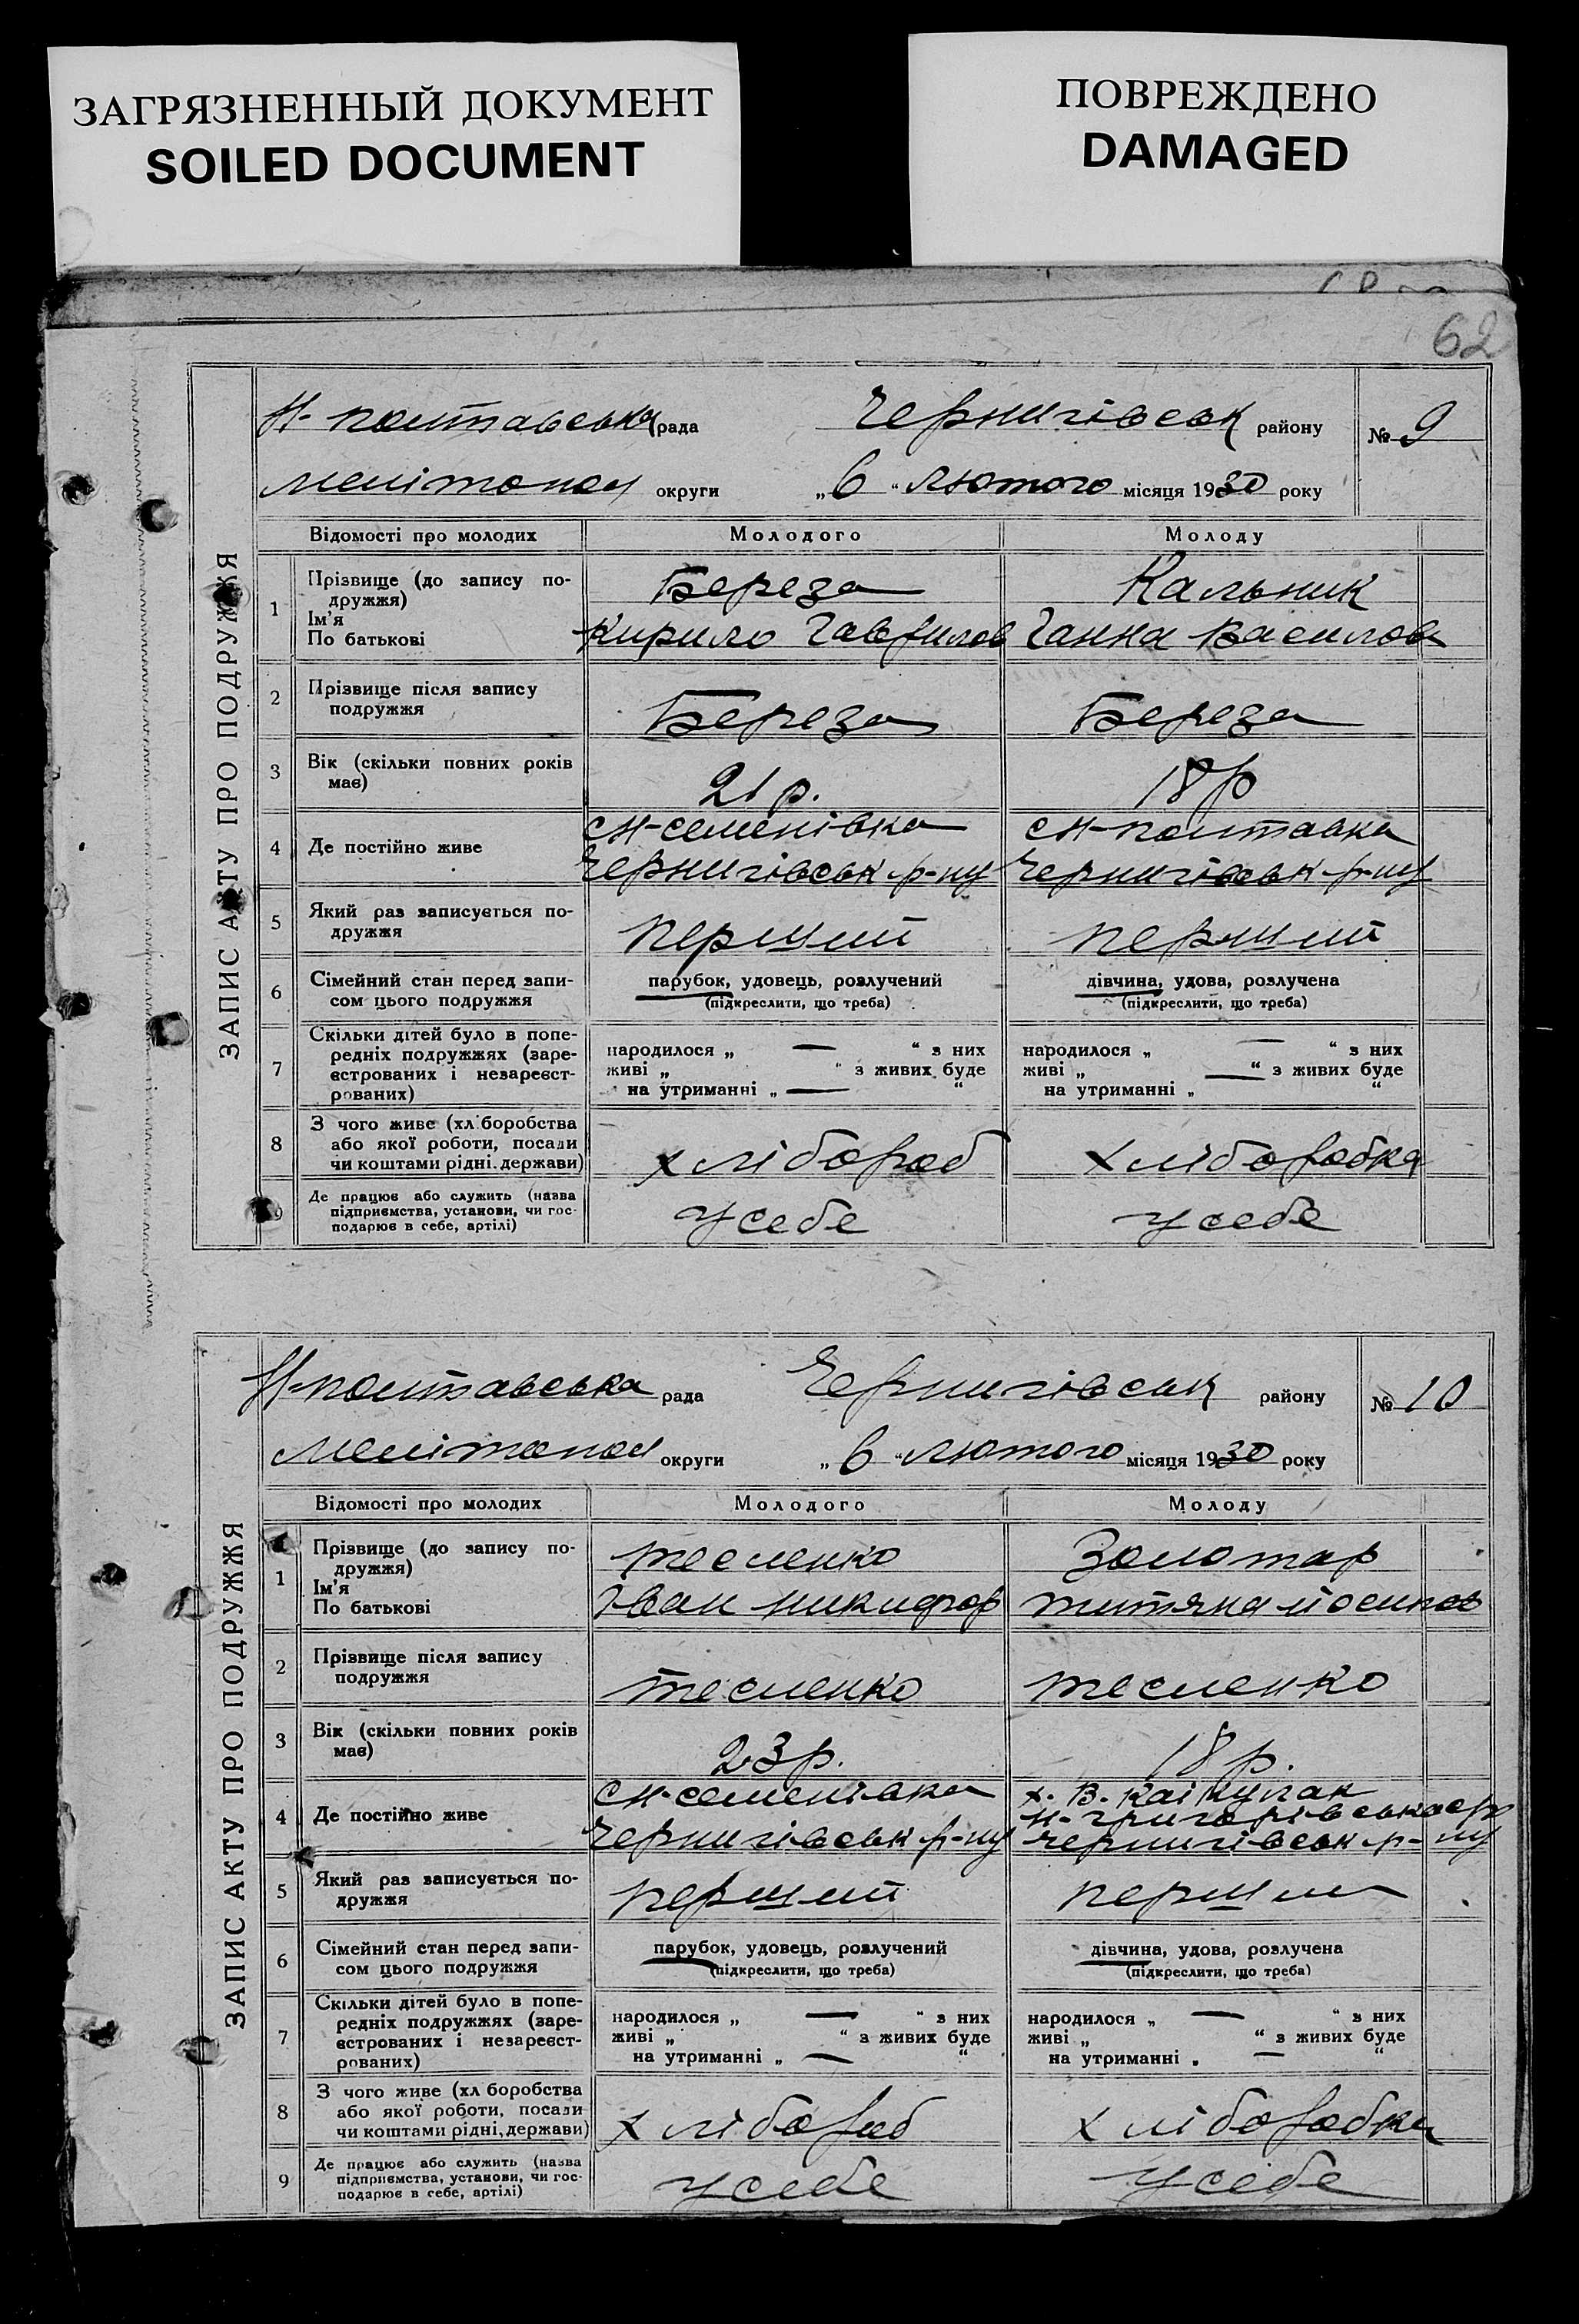 ЗАГРЯЗНЕННЫЙ ДОКУМЕНТ
SOILED DOCUMENT
ПОВРЕЖДЕНО
DAMAGED
62
ЗАПИС АКТУ ПРО ПОДРУЖЖЯ
Н-полтавська рада Чернигівськ району № 9
мелітопол округи „6“ лютого місяця 1930 року
Відомості про молодих Молодого Молоду
1 Прізвище (до запису подружжя) Береза Кальник
Ім'я
По батькові Кирило Гаврилов Ганна Василов
2 Прізвище після запису подружжя Береза Береза
3 Вік (скільки повних років має) 21 р. 18 р
4 Де постійно живе с Н-семенівка с Н-полтавка
Чернигівськ р-ну Чернигівськ р-ну
5 Який раз записується подружжя перший перший
6 Сімейний стан перед записом цього подружжя парубок, удовець, розлучений дівчина, удова, розлучена
(підкреслити, що треба) (підкреслити, що треба)
7 Скільки дітей було в попередніх подружжях (зареєстрованих і незареєстрованих)
народилося „ — “ з них народилося „ — “ з них
живі „ “ з живих буде живі „ “ з живих буде
на утриманні „ — “ на утриманні „ — “
8 З чого живе (хліборобства або якої роботи, посади чи коштами рідні, держави) хлібороб хліборобка
9 Де працює або служить (назва підприємства, установи, чи господарює в себе, артілі) у себе у себе
ЗАПИС АКТУ ПРО ПОДРУЖЖЯ
Н-полтавська рада Чернигівськ району № 10
мелітопол округи „6“ лютого місяця 1930 року
Відомості про молодих Молодого Молоду
1 Прізвище (до запису подружжя) тесленко Золотар
Ім'я
По батькові Іван никифор титяна йосипов
2 Прізвище після запису подружжя тесленко тесленко
3 Вік (скільки повних років має) 23 р. 18 р.
4 Де постійно живе с Н-семенівка х. В.
Н-григорівська с/р
Чернигівськ р-ну Чернигівськ р-ну
5 Який раз записується подружжя перший перши
6 Сімейний стан перед записом цього подружжя парубок, удовець, розлучений дівчина, удова, розлучена
(підкреслити, що треба) (підкреслити, що треба)
7 Скільки дітей було в попередніх подружжях (зареєстрованих і незареєстрованих)
народилося „ — “ з них народилося „ — “ з них
живі „ “ з живих буде живі „ “ з живих буде
на утриманні „ — “ на утриманні „ — “
8 З чого живе (хліборобства або якої роботи, посади чи коштами рідні, держави) хлібороб хліборобка
9 Де працює або служить (назва підприємства, установи, чи господарює в себе, артілі) у себе у себе